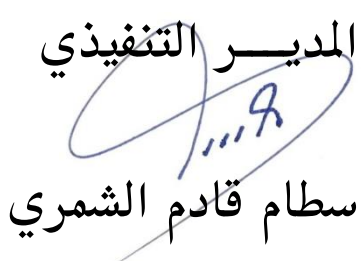 المديــــر التنفيذي
سطام قادم الشمري